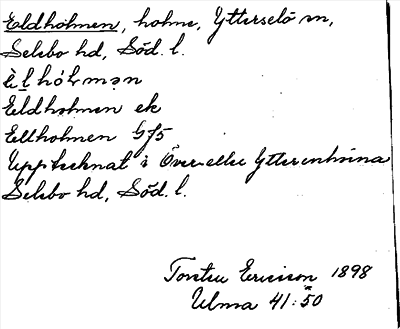 Eldholmen, holme, Ytterselö sn,
Selebo hd, Söd. l.
è l̥ hól mən
Eldholmen ek
Ellholmen Gf5
Upptecknat i Över- eller Ytterenhörna
Selebo hd, Söd. l.
Torsten Ericsson 1898
Ulma 41:50